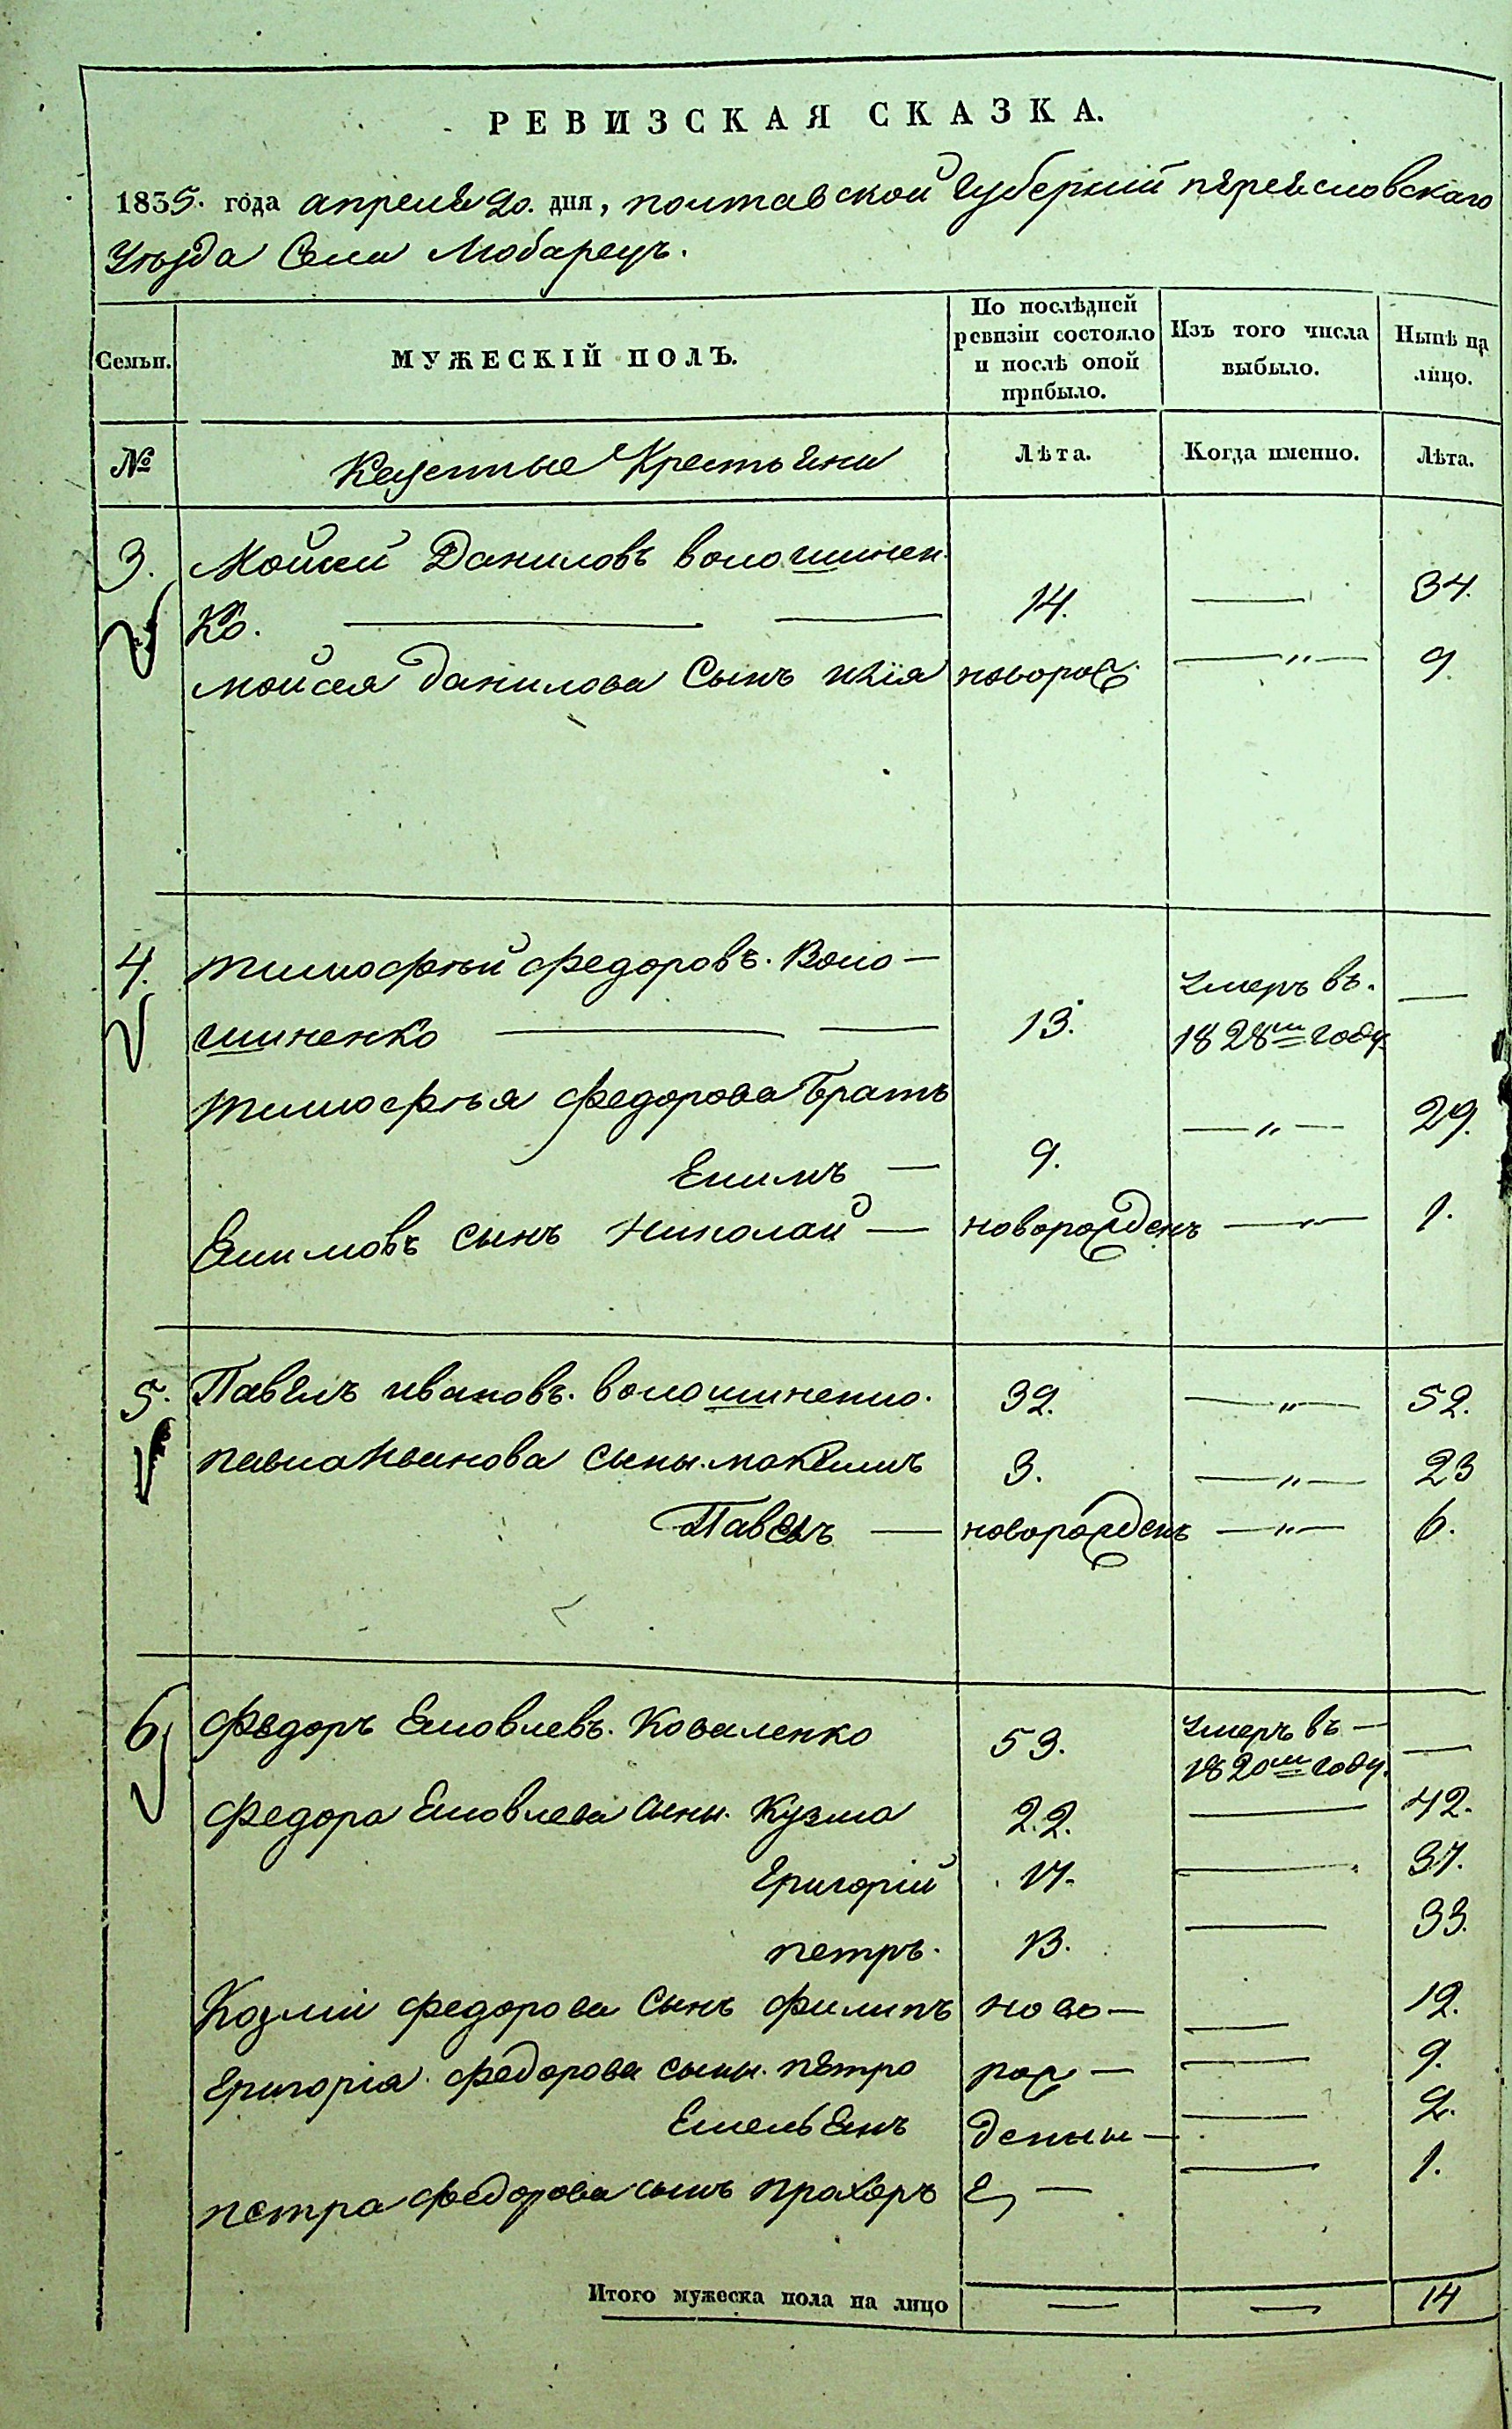 РЕВИЗСКАЯ СКАЗКА.
1835. года апреля 20. дня, полтавской губернии переясловскаго
уѣзда Села Любарецъ.
Семьи.
МУЖЕСКІЙ ПОЛЪ.
По послѣдней
ревизіи состояло
и послѣ оной
прибыло.
Изъ того числа
выбыло.
Нынѣ на
лицо.
№ Казенные Крестьяни Лѣта. Когда именно. Лѣта.
3. Мойсей Даниловъ волошинен
ко. — — 14. — 34.
мойсея данилова Сынъ илія новорож. —„— 9.
4. тимофѣй федоровъ. Воло—
шиненко — — 13. умеръ въ. 1828м году. —
тимофѣя федорова братъ
Екимъ — 9. —„— 29.
Екимовъ сынъ Николай — новорожденъ —„— 1.
5. Павелъ ивановъ. волошиненко. 32. —„— 52.
павла Иванова сыны. максимъ 3. —„— 23
Павелъ — новорожденъ —„— 6.
6. Федоръ Яковлевъ. Коваленко 53. умеръ въ — 1820м году. —
федора Яковлева сыны. Кузма 22. — 42.
Григорій 17. — 37.
петръ. 13. — 33.
Козмы федорова Сынъ филипъ ново— — 12.
Григорія федорова сыны. петро рож— — 9.
Емельянъ денны— — 2.
петра федорова сынъ прохоръ е, — — 1.
Итого мужеска пола на лицо — — 14